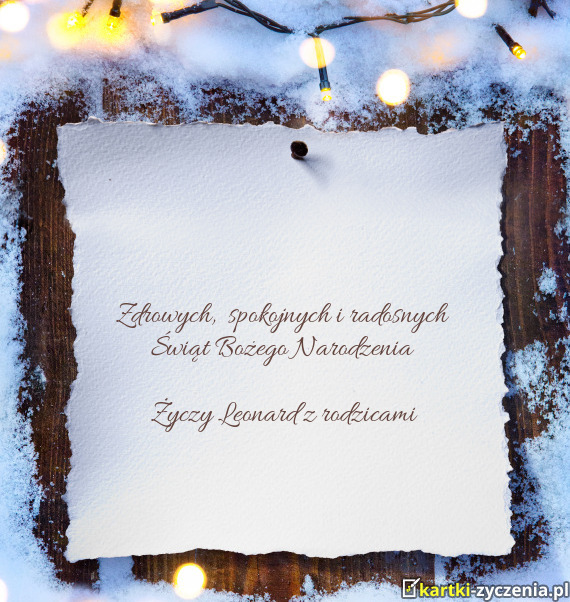 Zdrowych, spokojnych i radosnych
Świąt Bożego Narodzenia
Życzy Leonard z rodzicami
kartki-zyczenia.pl